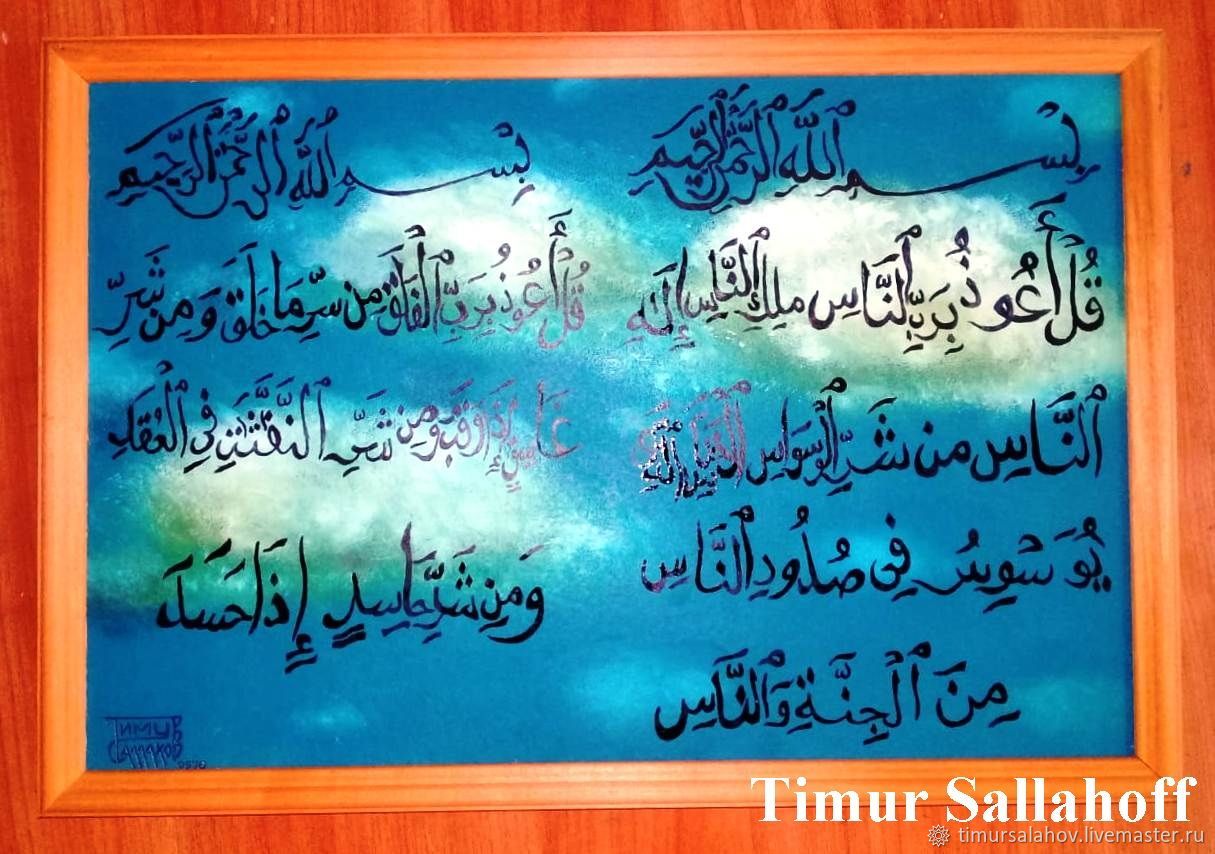 بِسْمِ ٱللَّهِ ٱلرَّحْمَٰنِ ٱلرَّحِيمِ
قُلْ أَعُوذُ بِرَبِّ ٱلنَّاسِ مَلِكِ ٱلنَّاسِ إِلَٰهِ
ٱلنَّاسِ مِن شَرِّ ٱلْوَسْوَاسِ
يُوَسْوِسُ فِى صُدُورِ ٱلنَّاسِ
مِنَ ٱلْجِنَّةِ وَٱلنَّاسِ
بِسْمِ ٱللَّهِ ٱلرَّحْمَٰنِ ٱلرَّحِيمِ
قُلْ أَعُوذُ بِرَبِّ ٱلْفَلَقِ مِن شَرِّ مَا خَلَقَ وَمِن شَرِّ
غَاسِقٍ إِذَا وَقَبَ وَمِن شَرِّ ٱلنَّفَّٰثَٰتِ فِى ٱلْعُقَدِ
وَمِن شَرِّ حَاسِدٍ إِذَا حَسَدَ
ТИМУР
Timur Sallahoff
timursalahov.livemaster.ru